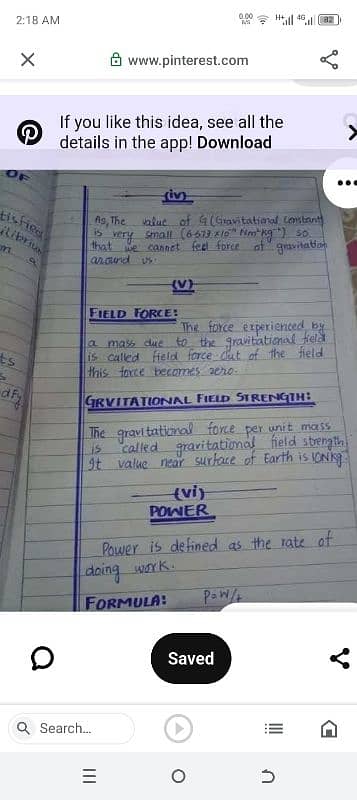 2:18 AM
0.00
B/S
H+
4G
82
www.pinterest.com
If you like this idea, see all the
details in the app! Download
OF
(iv)
As, The value of G (Gravitational constant)
is very small so
that we cannot feel force of gravitation
around us.
(v)
FIELD FORCE:
The force experienced by
a mass due to the gravitational field
is called field force out of the field
this force becomes zero.
GRVITATIONAL FIELD STRENGTH:
The gravitational force per unit mass
is called gravitational field strength
It value near surface of Earth is 10Nkg⁻¹
(vi)
POWER
Power is defined as the rate of
doing work.
FORMULA: P=W/t
Saved
Search...